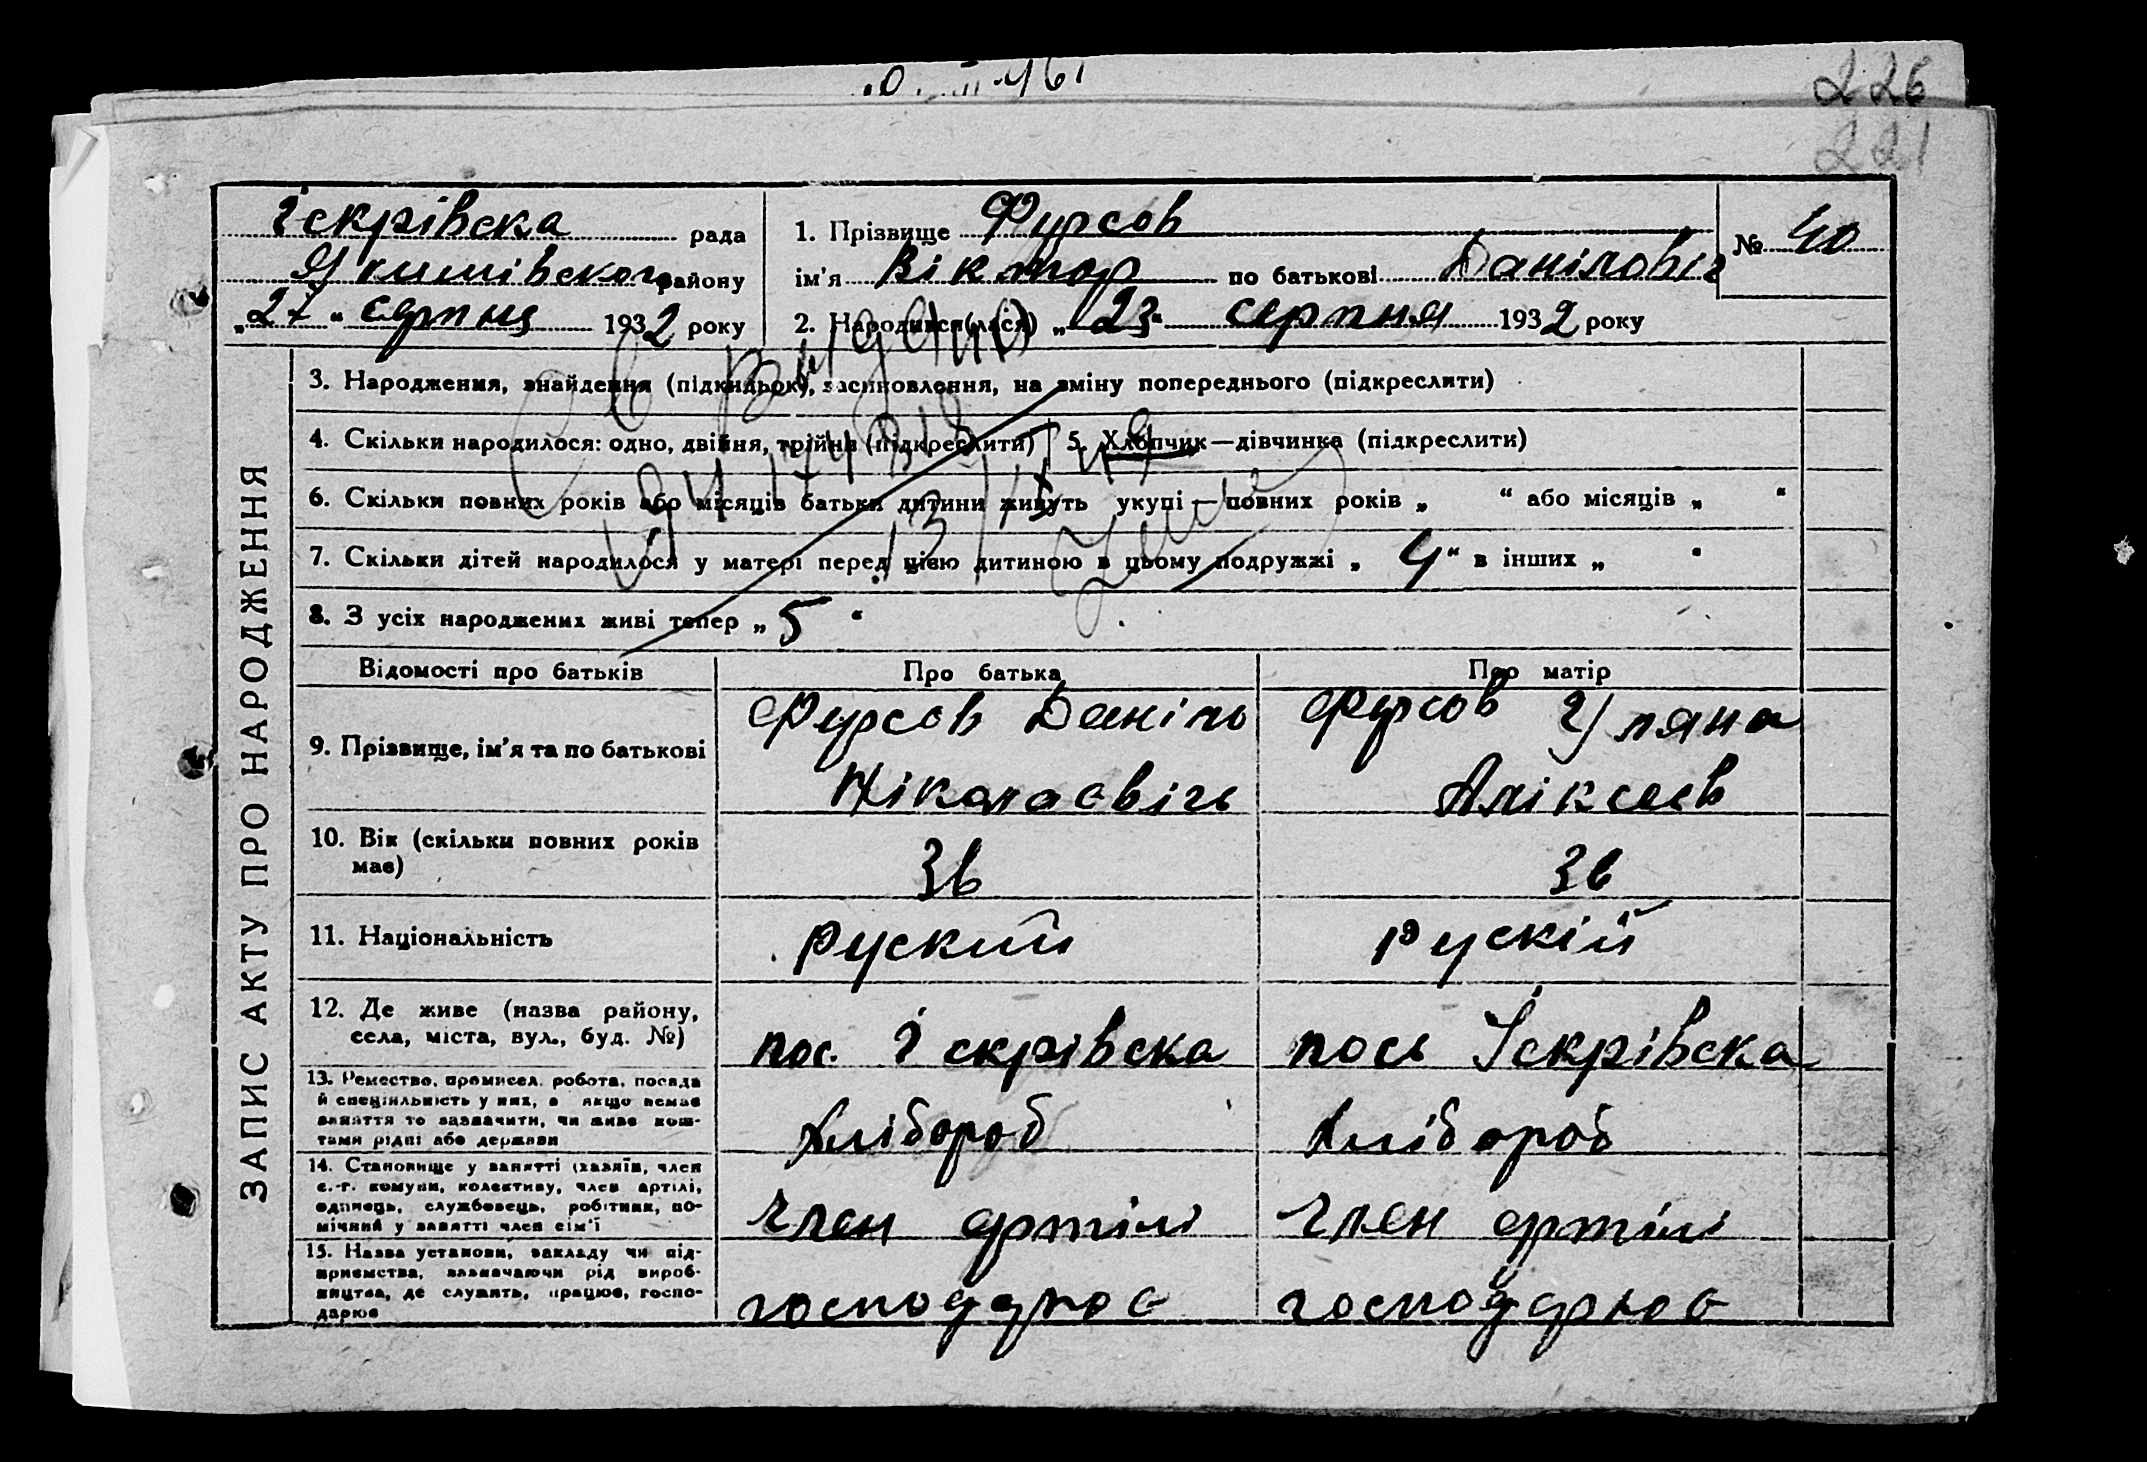 226
221
Іскрівска рада
Якимівского району
„27“ серпня 1932 року
1. Прізвище Фурсов
ім'я Віктор по батькові Даніловіч
№ 40
2. Народився(лася) „23“ серпня 1932 року
ЗАПИС АКТУ ПРО НАРОДЖЕННЯ
3. Народження, знайдення (підкидьок), засиновлення, на зміну попереднього (підкреслити)
4. Скільки народилося: одно, двійня, трійня (підкреслити)
5. Хлопчик—дівчинка (підкреслити)
6. Скільки повних років або місяців батьки дитини живуть укупі — повних років „ “ або місяців „ “
7. Скільки дітей народилося у матері перед цією дитиною в цьому подружжі „4“ в інших „ “
8. З усіх народжених живі тепер „5“
Відомості про батьків
Про батька
Про матір
9. Прізвище, ім'я та по батькові
Фурсов Даніль
Ніколаєвічь
Фурсов Уляна
Аліксєєв
10. Вік (скільки повних років
має)
36
36
11. Національність
руский
рускій
12. Де живе (назва району,
села, міста, вул., буд. №)
пос. Іскрівска
пось Іскрівска
13. Ремество, промисел, робота, посада
й спеціяльність у них, а якщо немає
заняття то зазначити, чи живе кош-
тами рідні або держави
Хлібороб
Хлібороб
14. Становище у занятті (хазяїн, член
с.-г. комуни, колективу, член артілі,
одинець, службовець, робітник, по-
мічний у занятті член сім'ї
член артілі
член артілі
15. Назва установи, закладу чи під-
приємства, зазначаючи рід вироб-
ництва, де служить, працює, госпо-
дарює
господарює
господарює